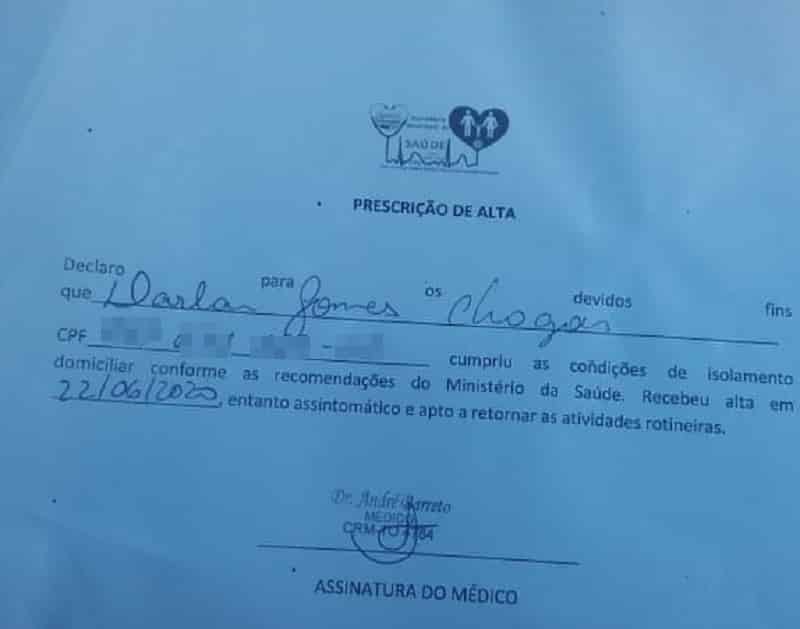 SAÚDE
PRESCRIÇÃO DE ALTA
Declaro para os devidos fins
que Darlan Gomes Chagas
CPF cumpriu as condições de isolamento
domiciliar conforme as recomendações do Ministério da Saúde. Recebeu alta em
22/06/2020, entanto assintomático e apto a retornar as atividades rotineiras.
Dr. André Barreto
MÉDICO
CRM-TO
ASSINATURA DO MÉDICO